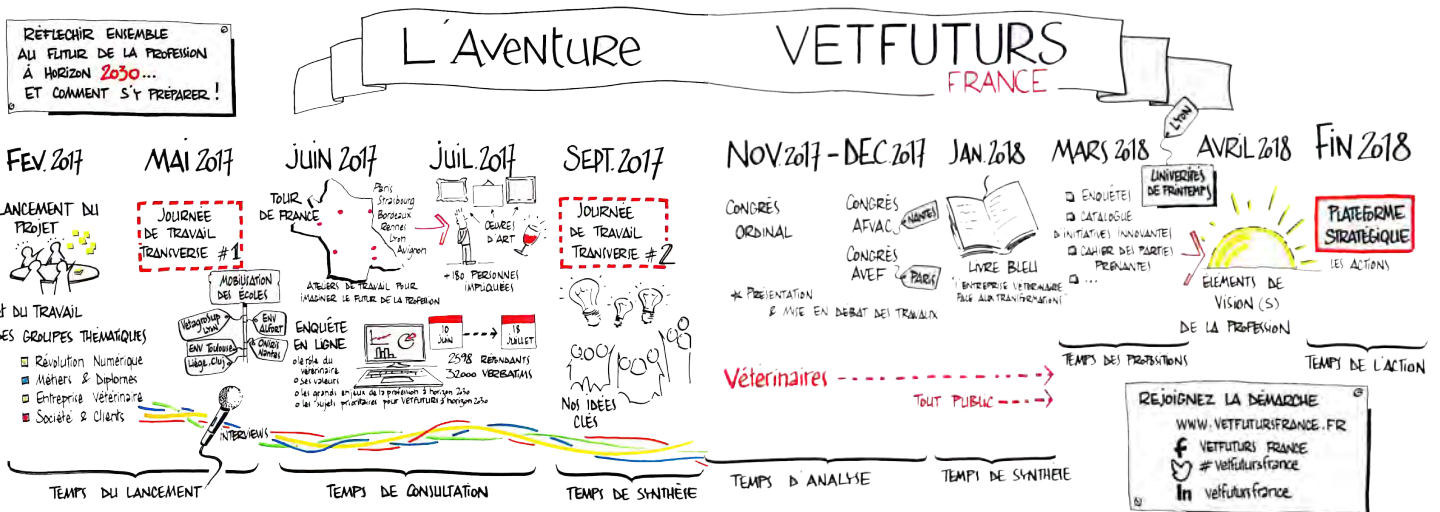 RÉFLECHIR ENSEMBLE
AU FUTUR DE LA PROFESSION
À HORIZON 2030...
ET COMMENT S'Y PRÉPARER !
L'AVENTURE VETFUTURS
FRANCE
FEV. 2017
LANCEMENT DU
PROJET
ET DU TRAVAIL
DES GROUPES THÉMATIQUES
Révolution Numérique
Métiers & Diplomes
Entreprise Vétérinaire
Société & Clients
MAI 2017
JOURNÉE
DE TRAVAIL
TRANSVERSE #1
MOBILISATION
DES ÉCOLES
Vetagrosup
Lyon
ENV
ALFORT
ENV Toulouse
ONIRIS
Nantes
Liège, Cluj
INTERVIEWS
TEMPS DU LANCEMENT
JUIN 2017
TOUR
DE FRANCE
Paris
Strasbourg
Bordeaux
Rennes
Lyon
Avignon
ATELIERS DE TRAVAIL POUR
IMAGINER LE FUTUR DE LA PROFESSION
JUIL. 2017
OEUVRES
D'ART
+180 PERSONNES
IMPLIQUÉES
ENQUÊTE
EN LIGNE
o le rôle du
vétérinaire
o ses valeurs
o les grands enjeux de la profession à horizon 2030
o les sujets prioritaires pour VETFUTURS à horizon 2030
10
JUIN
18
JUILLET
2598 RÉPONDANTS
32000 VERBATIMS
TEMPS DE CONSULTATION
SEPT. 2017
JOURNÉE
DE TRAVAIL
TRANSVERSE #2
NOS IDÉES
CLÉS
TEMPS DE SYNTHÈSE
NOV. 2017 - DEC. 2017
CONGRÈS
ORDINAL
CONGRÈS
AFVAC
NANTES
CONGRÈS
AVEF
PARIS
* PRÉSENTATION
& MISE EN DEBAT DES TRAVAUX
Vétérinaires
TOUT PUBLIC
TEMPS D'ANALYSE
JAN. 2018
LIVRE BLEU
L'ENTREPRISE VETERINAIRE
FACE AUX TRANSFORMATIONS
TEMPS DE SYNTHÈSE
MARS 2018
ENQUÊTES
CATALOGUE
D'INITIATIVES INNOVANTES
CAHIER DES PARTIES
PRENANTES
...
LYON
UNIVERSITÉS
DE PRINTEMPS
AVRIL 2018
ÉLÉMENTS DE
VISION (S)
DE LA PROFESSION
TEMPS DES PROPOSITIONS
FIN 2018
PLATEFORME
STRATÉGIQUE
LES ACTIONS
TEMPS DE L'ACTION
REJOIGNEZ LA DÉMARCHE
WWW.VETFUTURSFRANCE.FR
f VETFUTURS FRANCE
# vetfutursfrance
In vetfutursfrance